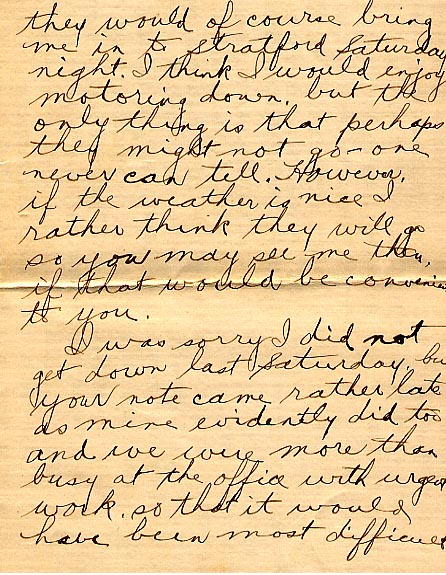 they would of course bring
me in to Stratford Saturday
night. I think I would enjoy
motoring down, but the
only thing is that perhaps
they might not go - one
never can tell. However,
if the weather is nice I
rather think they will go
so you may see me then,
if that would be convenien
to you.
I was sorry I did not
get down last Saturday, bu
your note came rather late
as mine evidently did too
and we were more than
busy at the office with urgen
work, so that it would
have been most difficul